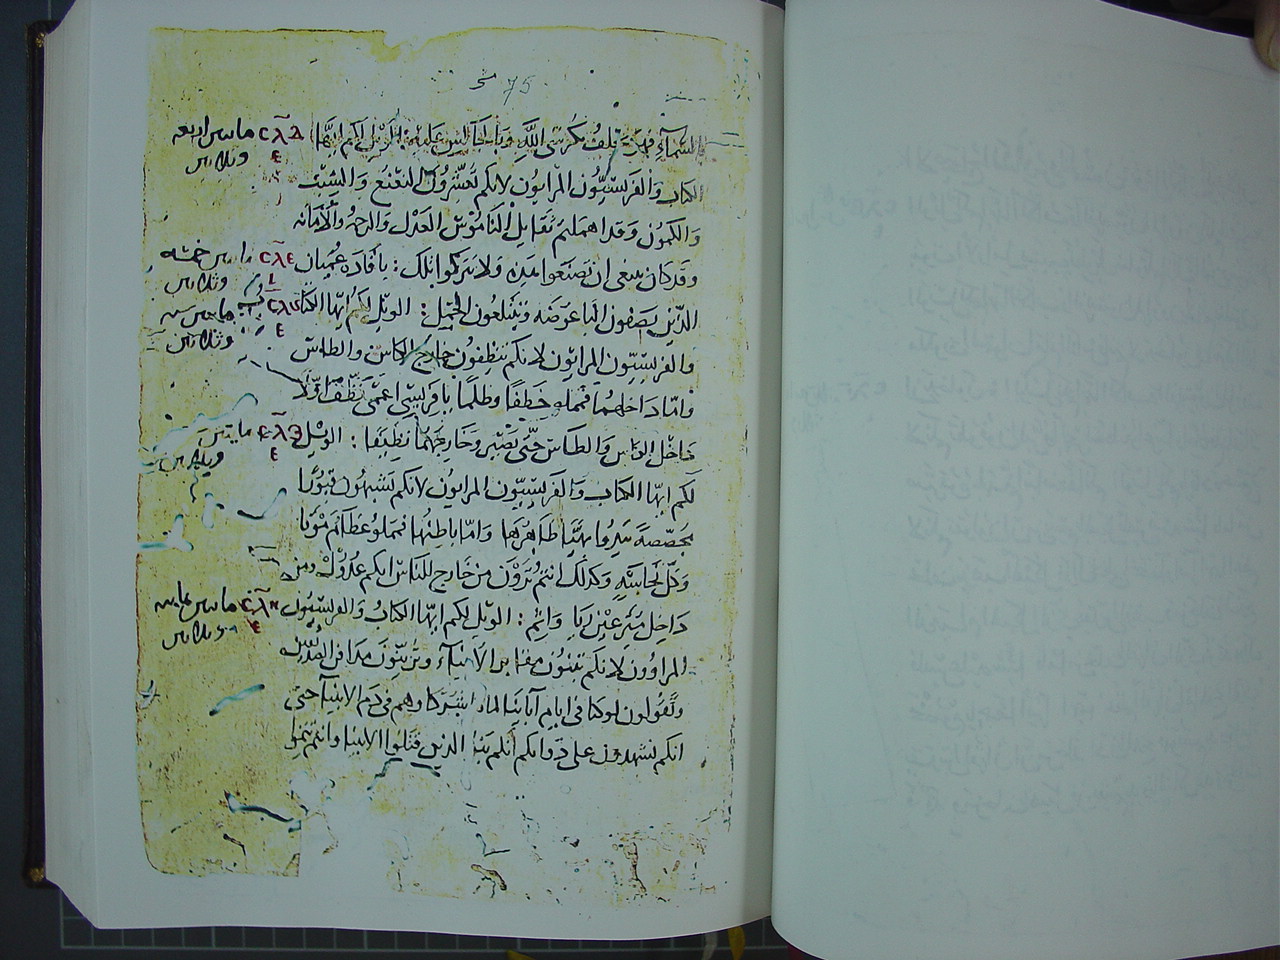 75
السماء فهو يحلف بكرسي الله وبالجالس عليه: الويل لكم ايها
ماىىىں اربعه
وثلاثىں
الكتاب والفريسيّون المرايون لانكم تعشّرون النعنع والشبث
والكمون وقد اهملتم ثقايل الناموس العدل والرحمة والأمانه
وقد كان ينبغي ان تصنعوا هذه ولا تتركوا تلك: يا قاده عميان
خمسه
وثلاثىں
الذين يصفون البا عوضه ويبتلعون الجمل: الويل لكم ايها الكتاب
وثلاثىں
والفريسيّون المرايون لانكم تنظفون خارج الكاس والطاس
وامّا داخلهما فمملو خطفًا وظلمًا يا فريسي اعمى نظّف اوّلًا
داخل الكاس والطاس حتّى يصير وخارجهما نظيفا: الويل
وثلاثىں
لكم ايها الكتاب والفريسيّون المرايون لانكم تشبهون قبورًا
مجصّصة يبدوا بهيًّا ظاهرها وامّا باطنها فمملو عظام موتى
وكل نجاسةٍ وكذلك انتم ترون من خارج للناس انكم عدول ومن
داخل مترعين ريا واثم: الويل لكم ايها الكتاب والفريسيون
وثلاثىں
المراوون لانكم تبنون مقابر الانبياء وتزينون مدافن الصديقين
وتقولون لو كنا في ايام آبائنا لما شركناهم في دم الانبيا حتى
انكم تشهدون على ذواتكم انكم بنو الذين قتلوا الانبيا وانتم تتموا